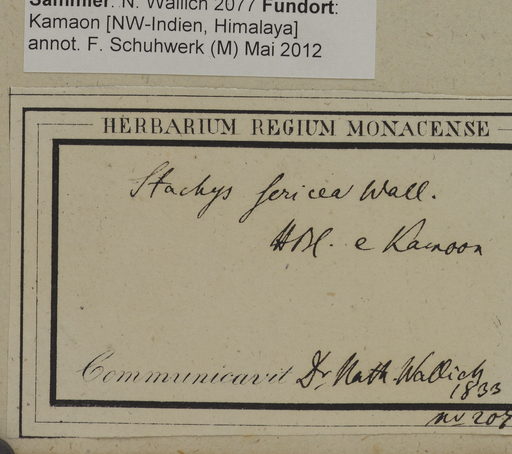 Sammler: N. Wallich 2077 Fundort:
Kamaon [NW-Indien, Himalaya]
annot. F. Schuhwerk (M) Mai 2012
HERBARIUM REGIUM MONACENSE
Stachys sericea Wall.
e Kamoon
Communicavit Dr. Nath. Wallich
1833